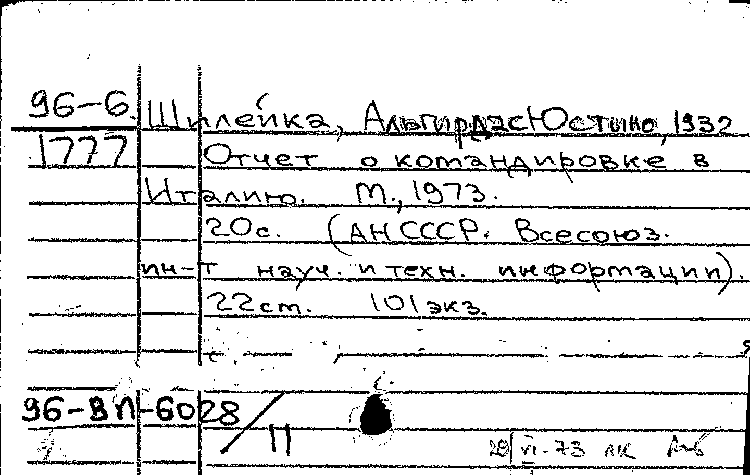 96-6 Шилéйка, Альгирдас Юстино, 1932
1777 Отчет о командировке в
Италию. М., 1973.
20с. (АН СССР. Всесоюз.
ин-т науч. и техн. информации).
22 см. 101 экз.
96-ВП-6028/11
29/VI-73 ЛК